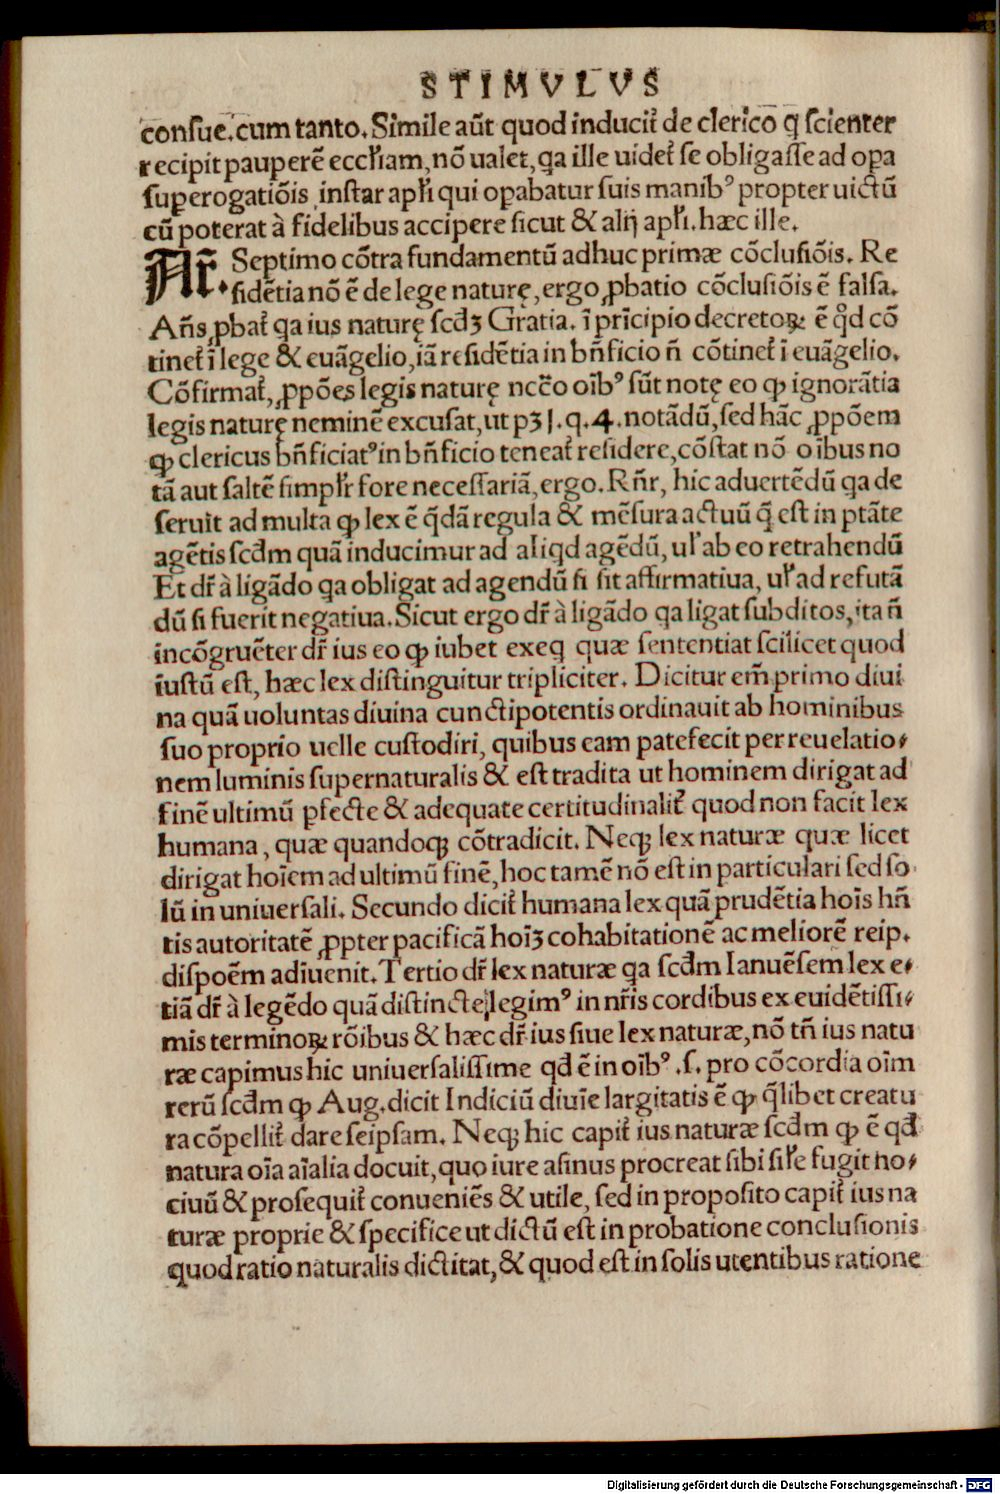 STIMVLVS
conſue. cum tanto. Simile aūt quod inducit᷑ de clerico q̄ ſcienter
recipit pauperē eccłiam, nō ualet, qa ille uidet᷑ ſe obligaſſe ad opa
ſuperogatiōis inſtar apłi qui opabatur ſuis manibꝰ propter uictū
cū poterat à fidelibus accipere ſicut & alij apłi. hæc ille.
Ar̄. Septimo cōtra fundamentū adhuc primæ cōcluſiōis. Re
ſidētia nō ē de lege naturę, ergo ꝓbatio cōcluſiōis ē falſa.
Añs ꝓbat᷑ qa ius naturę ſcdꝫ Gratia. ī prīcipio decretoꝝ ē qd̄ cō
tinet᷑ ī lege & euāgelio, iā reſidētia in bñficio ñ cōtinet᷑ ī euāgelio.
Cōfirmat᷑, ꝓpōes legis naturę nccō oībꝰ ſūt notę eo ꝙ ignorātia
legis naturę neminē excuſat, ut pꝫ J. q. 4. notādū, ſed hāc ꝓpōem
ꝙ clericus bñficiatꝰ in bñficio teneat᷑ reſidere, cōſtat nō oībus no
tā aut ſaltē ſimplr̄ fore neceſſariā, ergo. Rñr, hic aduertēdū qa de
ſeruit ad multa ꝙ lex ē q̄dā regula & mēſura actuū q̄ eſt in ptāte
agētis ſcd̄m quā inducimur ad aliqd agēdū, uł ab eo retrahendū
Et dr̄ à ligādo qa obligat ad agendū ſi ſit affirmatiua, uł ad refutā
dū ſi fuerit negatiua. Sicut ergo dr̄ à ligādo qa ligat ſubditos, ita ñ
incōgruēter dr̄ ius eo ꝙ iubet exeq quæ ſententiat ſcilicet quod
iuſtū eſt, hæc lex diſtinguitur tripliciter. Dicitur em̄ primo diui
na quā uoluntas diuina cunctipotentis ordinauit ab hominibus
ſuo proprio uelle cuſtodiri, quibus eam patefecit per reuelatio⸗
nem luminis ſupernaturalis & eſt tradita ut hominem dirigat ad
finē ultimū pfecte & adequate certitudinalit᷑ quod non facit lex
humana, quæ quandoqꝫ cōtradicit. Neqꝫ lex naturæ quæ licet
dirigat hoīem ad ultimū finē, hoc tamē nō eſt in particulari ſed ſo
lū in uniuerſali. Secundo dicit᷑ humana lex quā prudētia hoīs hñ
tis autoritatē ꝓpter pacificā hoīꝫ cohabitationē ac meliorē reip.
diſpoēm adiuenit. Tertio dr̄ lex naturæ qa ſcd̄m Ianuēſem lex e⸗
tiā dr̄ à legēdo quā diſtincte legimꝰ in nr̄is cordibus ex euidētiſſi⸗
mis terminoꝝ rōibus & hæc dr̄ ius ſiue lex naturæ, nō tñ ius natu
ræ capimus hic uniuerſaliſſime qd̄ ē in oībꝰ .ſ. pro cōcordia oīm
rerū ſcd̄m ꝙ Aug. dicit Indiciū diuīe largitatis ē ꝙ q̄libet creatu
ra cōpellit᷑ dare ſeipſam. Neqꝫ hic capit᷑ ius naturæ ſcd̄m ꝙ ē qd̄
natura oīa aīalia docuit, quo iure aſinus procreat ſibi ſiłe fugit no⸗
ciuū & proſequit᷑ conueniēs & utile, ſed in propoſito capit᷑ ius na
turæ proprie & ſpecifice ut dictū eſt in probatione concluſionis
quod ratio naturalis dictitat, & quod eſt in ſolis utentibus ratione
Digitalisierung gefördert durch die Deutsche Forschungsgemeinschaft - DFG